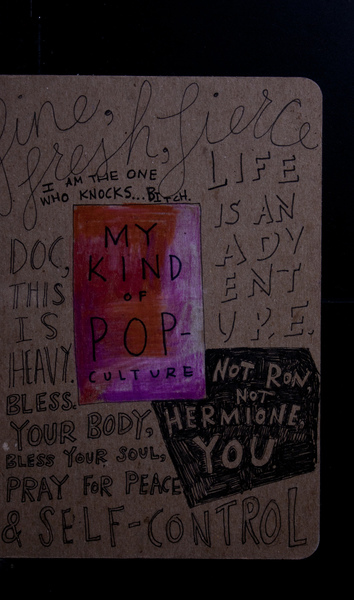 fine,
fresh, fierce
I AM THE ONE
WHO KNOCKS... BITCH.
LIFE
IS AN
ADV
ENT
URE.
MY
KIND
OF
POP-
CULTURE
DOC,
THIS
IS
HEAVY.
NOT RON,
NOT
HERMIONE,
YOU
BLESS
YOUR BODY,
BLESS YOUR SOUL,
PRAY FOR PEACE
& SELF-CONTROL